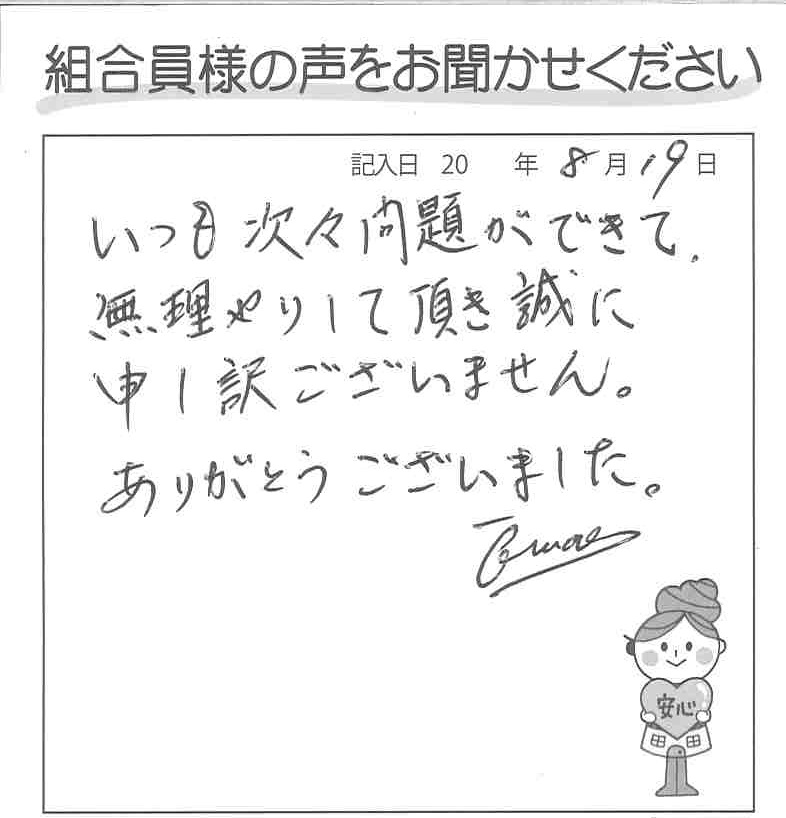 組合員様の声をお聞かせください
記入日 20 年 8月19日
いつも次々問題ができて、
無理やりして頂き誠に
申し訳ございません。
ありがとうございました。
安心